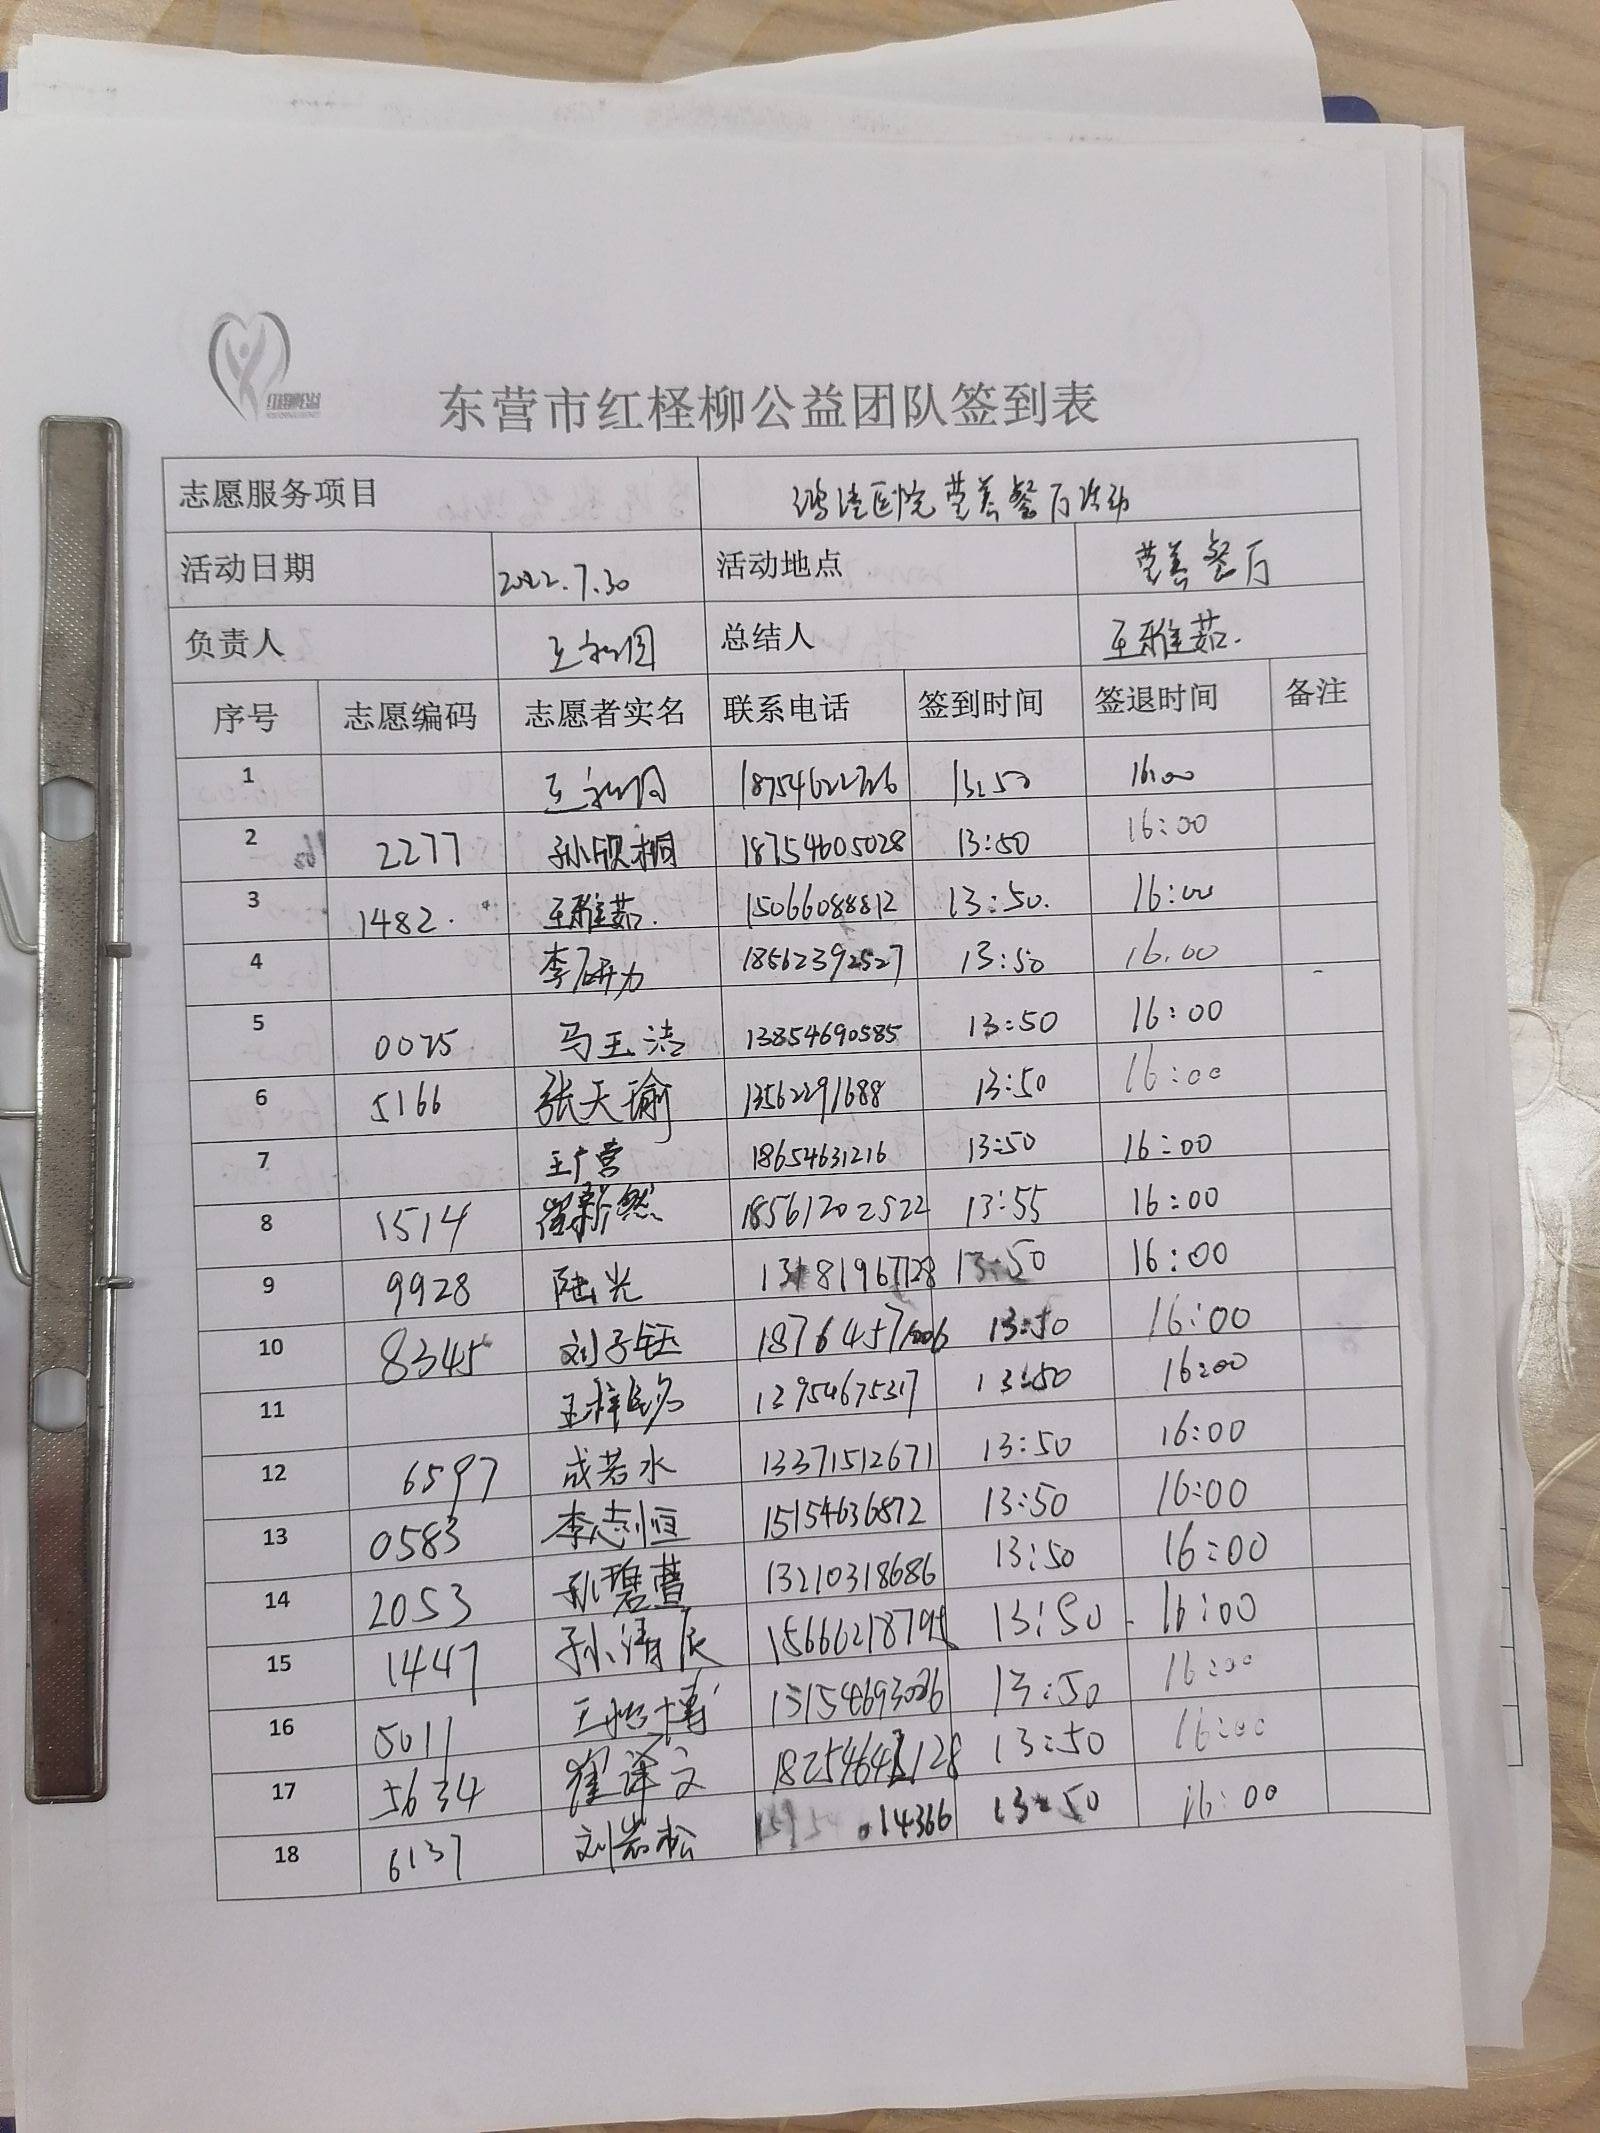 东营市红柽柳公益团队签到表
志愿服务项目 医院 餐厅活动
活动日期 2022.7.30 活动地点 餐厅
负责人 总结人 王雅茹.
序号 志愿编码 志愿者实名 联系电话 签到时间 签退时间 备注
1 13:50 16:00
2 2277 孙颀桐 18754605028 13:50 16:00
3 1482. 王雅茹. 15066088812 13:50. 16:00
4 18562392527 13:50 16.00
5 0075 马玉洁 13854690585 13:50 16:00
6 5166 张天瑜 13562291688 13:50 16:00
7 王广营 18654631216 13:50 16:00
8 1514 崔新然 18561202522 13:55 16:00
9 9928 陆光 13181967128 13:50 16:00
10 8345 刘子钰 13:50 16:00
11 13:50 16:00
12 6597 成若水 13371512671 13:50 16:00
13 0583 李志恒 15154636872 13:50 16:00
14 2053 13210318686 13:50 16:00
15 1447 孙清辰 13:50 16:00
16 5011 13154693026 13:50 16:00
17 5634 翟译文 13:50 16:00
18 6137 刘岩松 14366 13:50 16:00